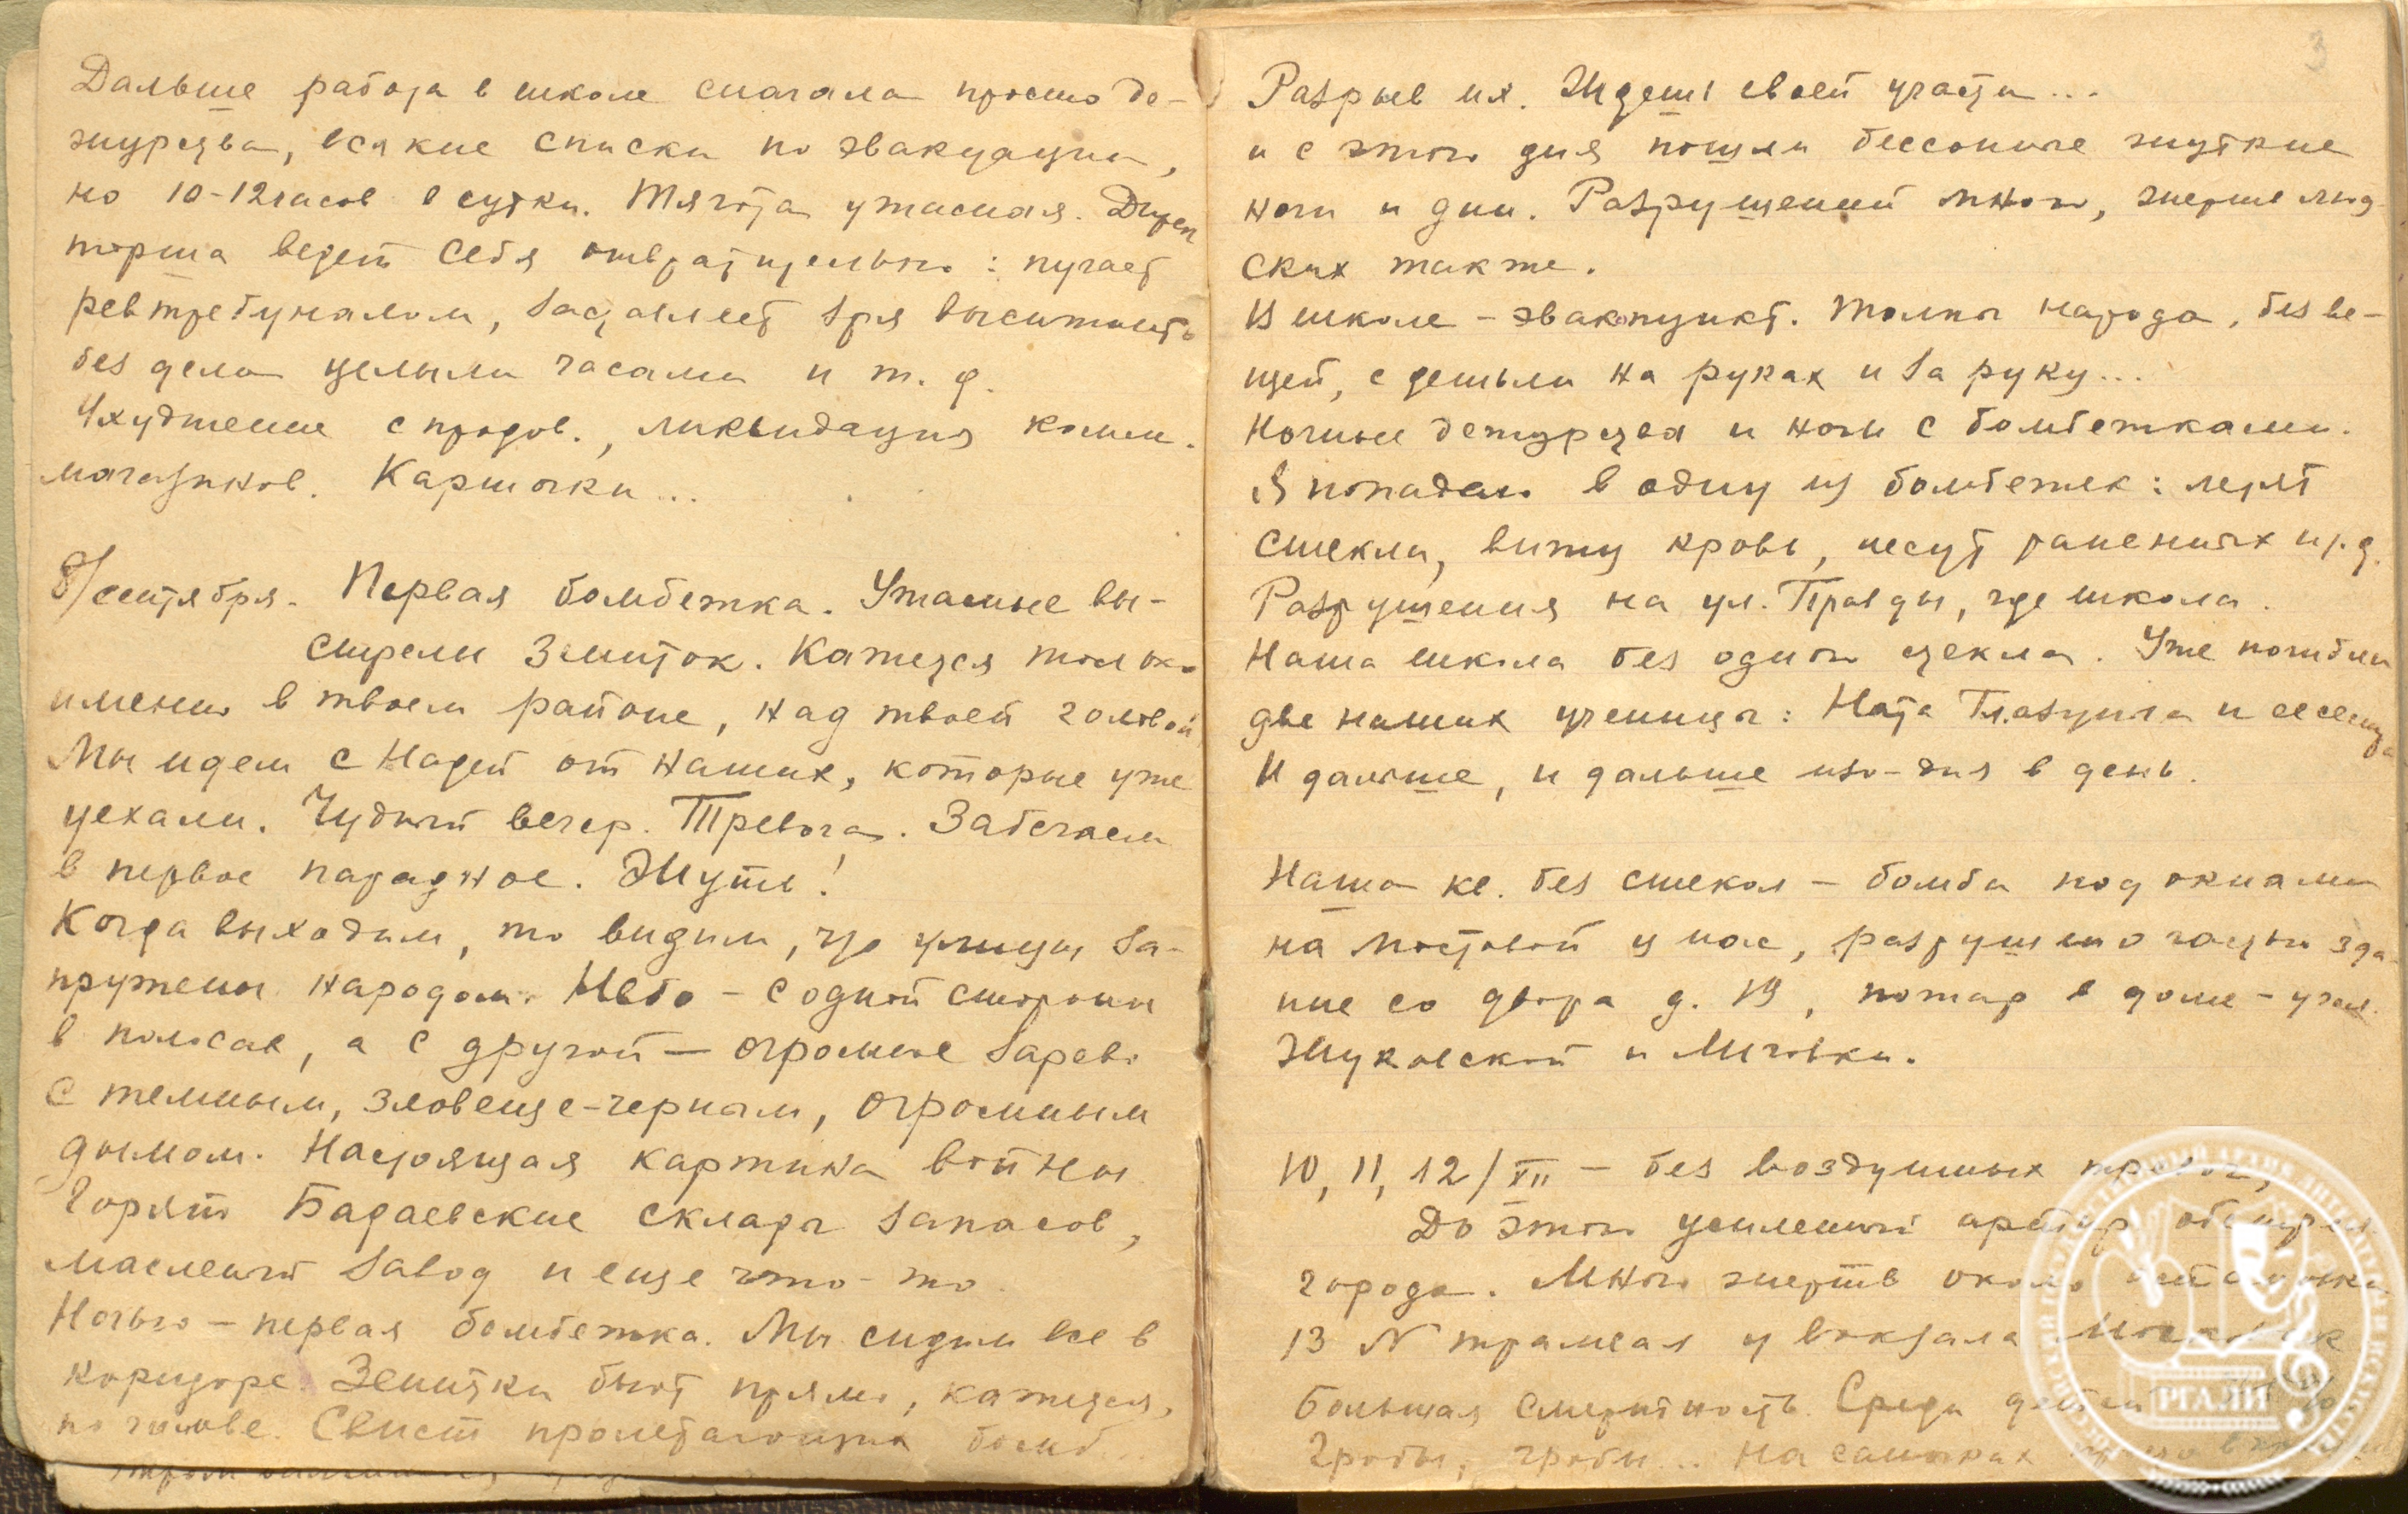 Дальше работа в школе сначала просто де-
журства, всякие списки по эвакуации,
но 10-12 часов в сутки. Тягота ужасная. Дирек
торша ведет себя отвратительно: пугает
ревтребуналом, заставляет зря высиживать
без дела целыми часами и т. д.
Ухудшение с продов., ликвидация комм.
магазинов. Карточки...
8/сентября. Первая бомбежка. Ужасные вы-
стрелы зениток. Кажется только
именно в твоем районе, над твоей головой
Мы идем с Надей от наших, которые уже
уехали. Чудный вечер. Тревога. Забегаем
в первое парадное. Жуть!
Когда выходим, то видим, что улицы за-
пружены народом. Небо - с одной стороны
в полосах, а с другой - огромное зарево
с темным, зловеще-черным, огромным
дымом. Настоящая картина войны
Горят Бадаевские склады запасов,
масленый завод и еще что-то.
Ночью - первая бомбежка. Мы сидим все в
коридоре. Зенитки бьют прямо, кажется,
по голове. Свист пролетающих бомб...
3
Разрыв их. Ждешь своей участи...
и с этого дня пошли бессонные жуткие
ночи и дни. Разрушений много, жертв люд
ских также.
В школе - эвакопункт. Толпы народа, без ве-
щей, с детьми на руках и за руку...
Ночные дежурства и ночи с бомбежками.
Я попадаю в одну из бомбежек: летят
стекла, вижу кровь, несут раненых и т. д.
Разрушения на ул. Правды, где школа.
Наша школа без одного стекла. Уже погибли
две наших ученицы: Ната Глазунова и ее сестра
И дальше, и дальше изо-дня в день.
Наша кв. без стекол - бомба под окнами
на мостовой у нас, разрушено часть зда-
ние со двора д. 19, пожар в доме - угол.
Жуковской и Лиговки.
10, 11, 12/XII - без воздушных тревог,
До этого усиленный артил. обстрел
города. Много жертв около остановки
13 N трамвая у вокзала
Большая смертность. Среди детей
Гробы, гробы... На саночках
РГАЛИ